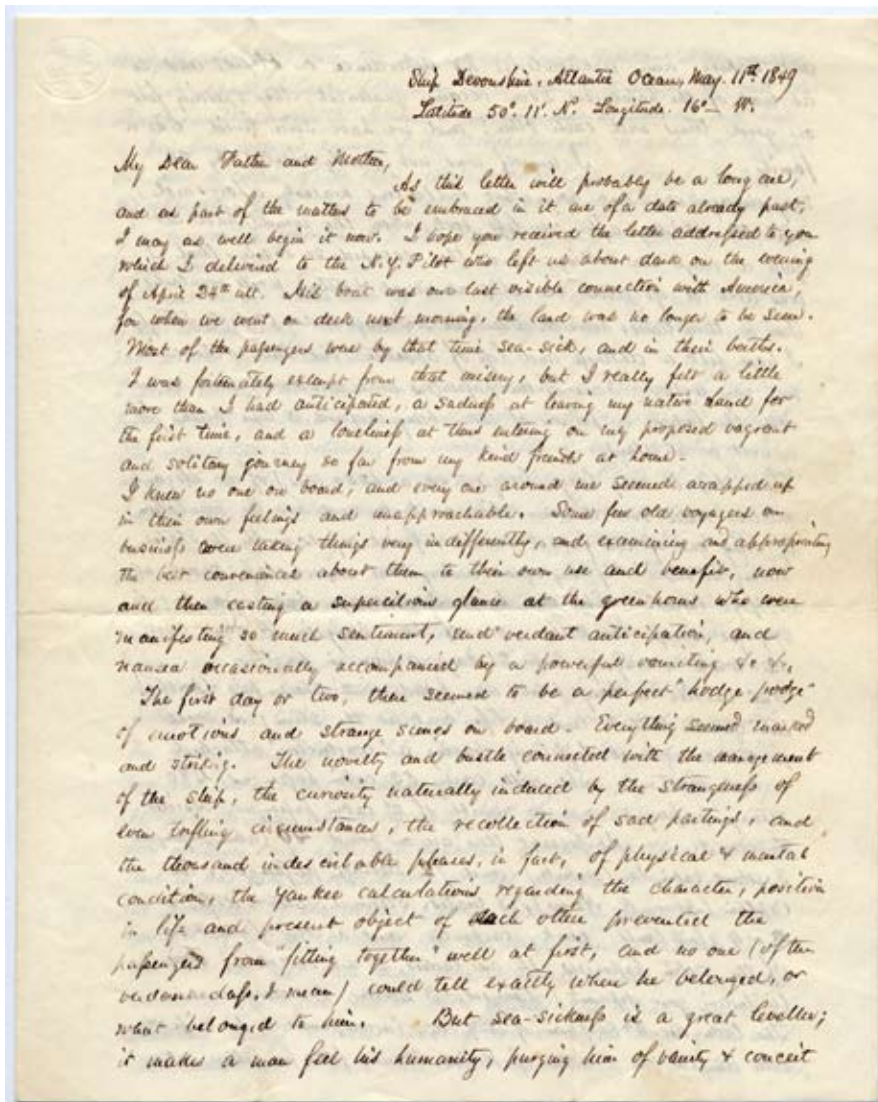 Ship Devonshire, Atlantic Ocean, May. 11th 1849
Latitude 50°. 11'. N. Longitude. 16°— W.
My Dear Father and Mother,
As this letter will probably be a long one,
and as part of the matters to be embraced in it are of a date already past,
I may as well begin it now. I hope you received the letter addressed to you
which I delivered to the N.Y. Pilot who left us about dark on the evening
of April 24th ult. His boat was our last visible connection with America,
for when we went on deck next morning, the land was no longer to be seen.
Most of the passengers were by that time sea-sick, and in their berths.
I was fortunately exempt from that misery, but I really felt a little
more than I had anticipated, a sadness at leaving my native land for
the first time, and a loneliness at thus entering on my proposed vagrant
and solitary journey so far from my kind friends at home.
I knew no one on board, and every one around me seemed wrapped up
in their own feelings and unapproachable. Some few old voyagers on
business were taking things very indifferently, and examining and appropriating
the best conveniences about them to their own use and benefit, now
and then casting a supercilious glance at the greenhorns who were
manifesting so much sentiment, and verdant anticipation, and
nausea occasionally accompanied by a powerful vomiting &c &c.
The first day or two, there seemed to be a perfect "hodge podge"
of emotions and strange scenes on board. Everything seemed marked
and striking. The novelty and bustle connected with the management
of the ship, the curiosity naturally induced by the strangeness of
even trifling circumstances, the recollection of sad partings, and
the thousand indescribable phases, in fact, of physical & mental
condition, the Yankee calculations regarding the character, position
in life and present object of each other prevented the
passengers from "fitting together" well at first, and no one (of the
verdant class, I mean) could tell exactly where he belonged, or
what belonged to him. But sea-sickness is a great leveller;
it makes a man feel his humanity, purging him of vanity & conceit